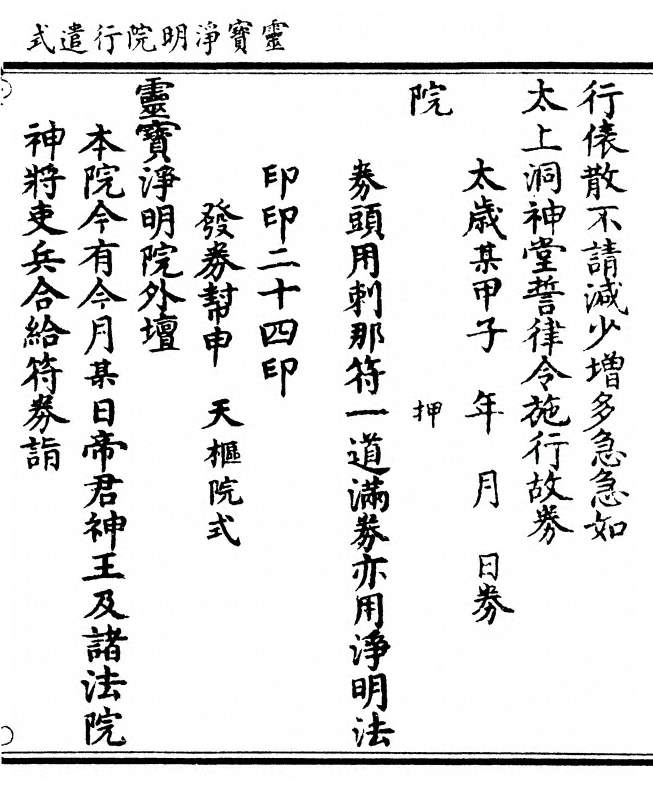 靈寶淨明院行遣式
行俵散不請減少增多急急如
太上洞神堂誓律令施行故券
太歲某甲子 年 月 日券
院 押
券頭用刺那符一道滿券亦用淨明法
印印二十四印
發券幫申 天樞院式
靈寶淨明院外壇
本院今有今月某日帝君神王及諸法院
神將吏兵合給符券詣